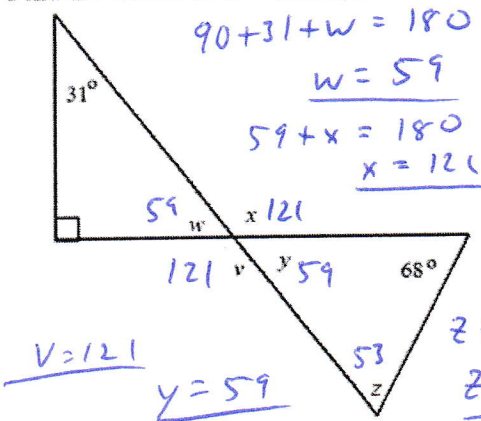 90+31+w = 180
w = 59
31°
59+x = 180
x = 121
59 w x 121
121 v y 59 68°
v=121
53
z
y = 59
z
z